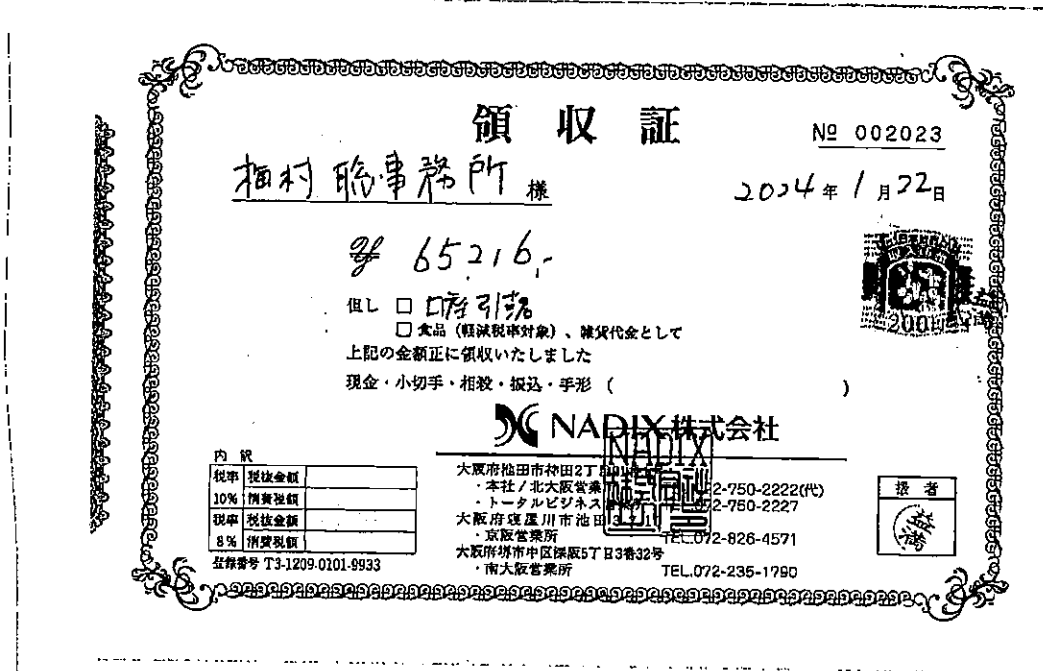 領 収 証
№ 002023
植村 聡事務所 様
2024年 1月22日
¥ 65,216,-
但し □ 口座引落
□ 食品（軽減税率対象）、雑貨代金として
上記の金額正に領収いたしました
現金・小切手・相殺・振込・手形 （ ）
200円
NADIX株式会社
NADIX
内 訳
税率 税抜金額
10% 消費税額
税率 税抜金額
8% 消費税額
登録番号 T3-1209-0101-9933
大阪府池田市神田2丁目
・本社/北大阪営業 2-750-2222(代)
・トータルビジネス TEL.072-750-2227
大阪府寝屋川市池田
・京阪営業所 TEL.072-826-4571
大阪府堺市中区深阪5丁目3番32号
・南大阪営業所 TEL.072-235-1790
扱 者